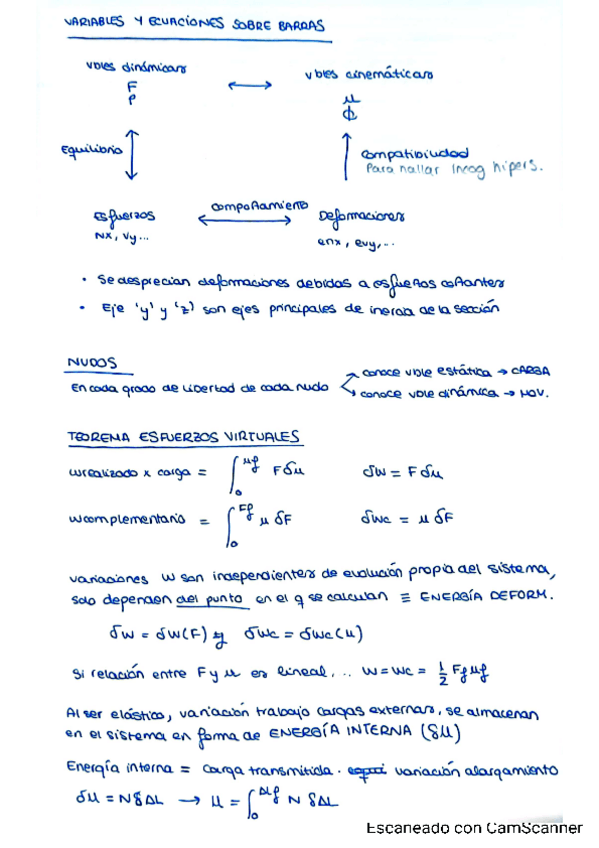 VARIABLES Y ECUACIONES SOBRE BARRAS
vbles dinámicas ⟷ vbles cinemáticas
F u
P ϕ
Equilibrio Compatibilidad
Para hallar incog hipers.
Esfuerzos ⟷ comportamiento Deformaciones
Nx, Vy... enx, evy,...
• Se desprecian deformaciones debidas a esfuerzos cortantes
• Eje 'y' y 'z' son ejes principales de inercia de la sección
NUDOS
En cada grado de libertad de cada nudo conoce vble estática → CARGA
conoce vble dinámica → MOV.
TEOREMA ESFUERZOS VIRTUALES
Wrealizado x carga = ∫₀^uf F δu δW = F δu
Wcomplementario = ∫₀^Ff u δF δWc = u δF
Variaciones W son independientes de evolución propia del sistema,
solo dependen del punto en el q se calculan ≡ ENERGÍA DEFORM.
δW = δW(F) y δWc = δWc(u)
Si relación entre F y u es lineal... W = Wc = 1/2 Ff uf
Al ser elástico, variación trabajo cargas externas, se almacenan
en el sistema en forma de ENERGÍA INTERNA (δU)
Energía interna = carga transmitida · variación alargamiento
δU = N δΔL → U = ∫₀^ΔLf N δΔL
Escaneado con CamScanner